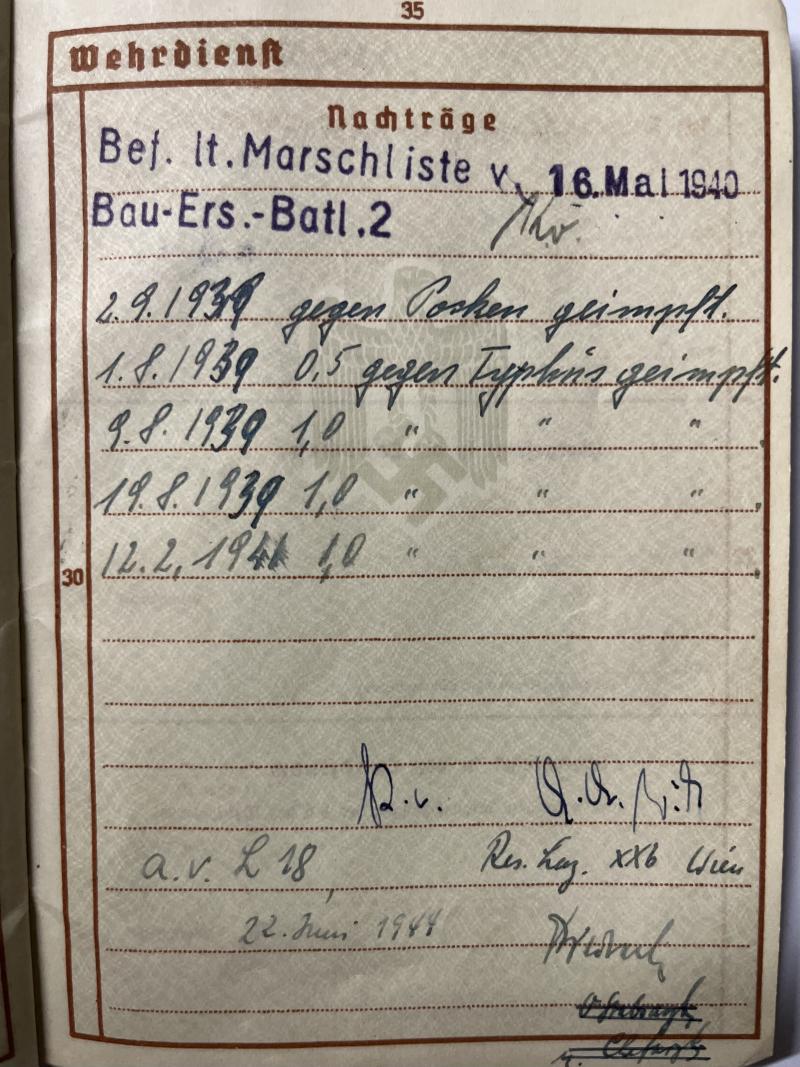 35
Wehrdienst
Nachträge
Bef. lt. Marschliste v. 16. Mai 1940
Bau-Ers.-Batl. 2
2. 9. 1939 gegen Pocken geimpft.
1. 8. 1939 0,5 gegen Typhus geimpft.
9. 8. 1939 1,0 " " "
19. 8. 1939 1,0 " " "
12. 2. 1941 1,0 " " "
30
a.v. L 18, Res. Laz. XXb Wien
22. Juni 1944